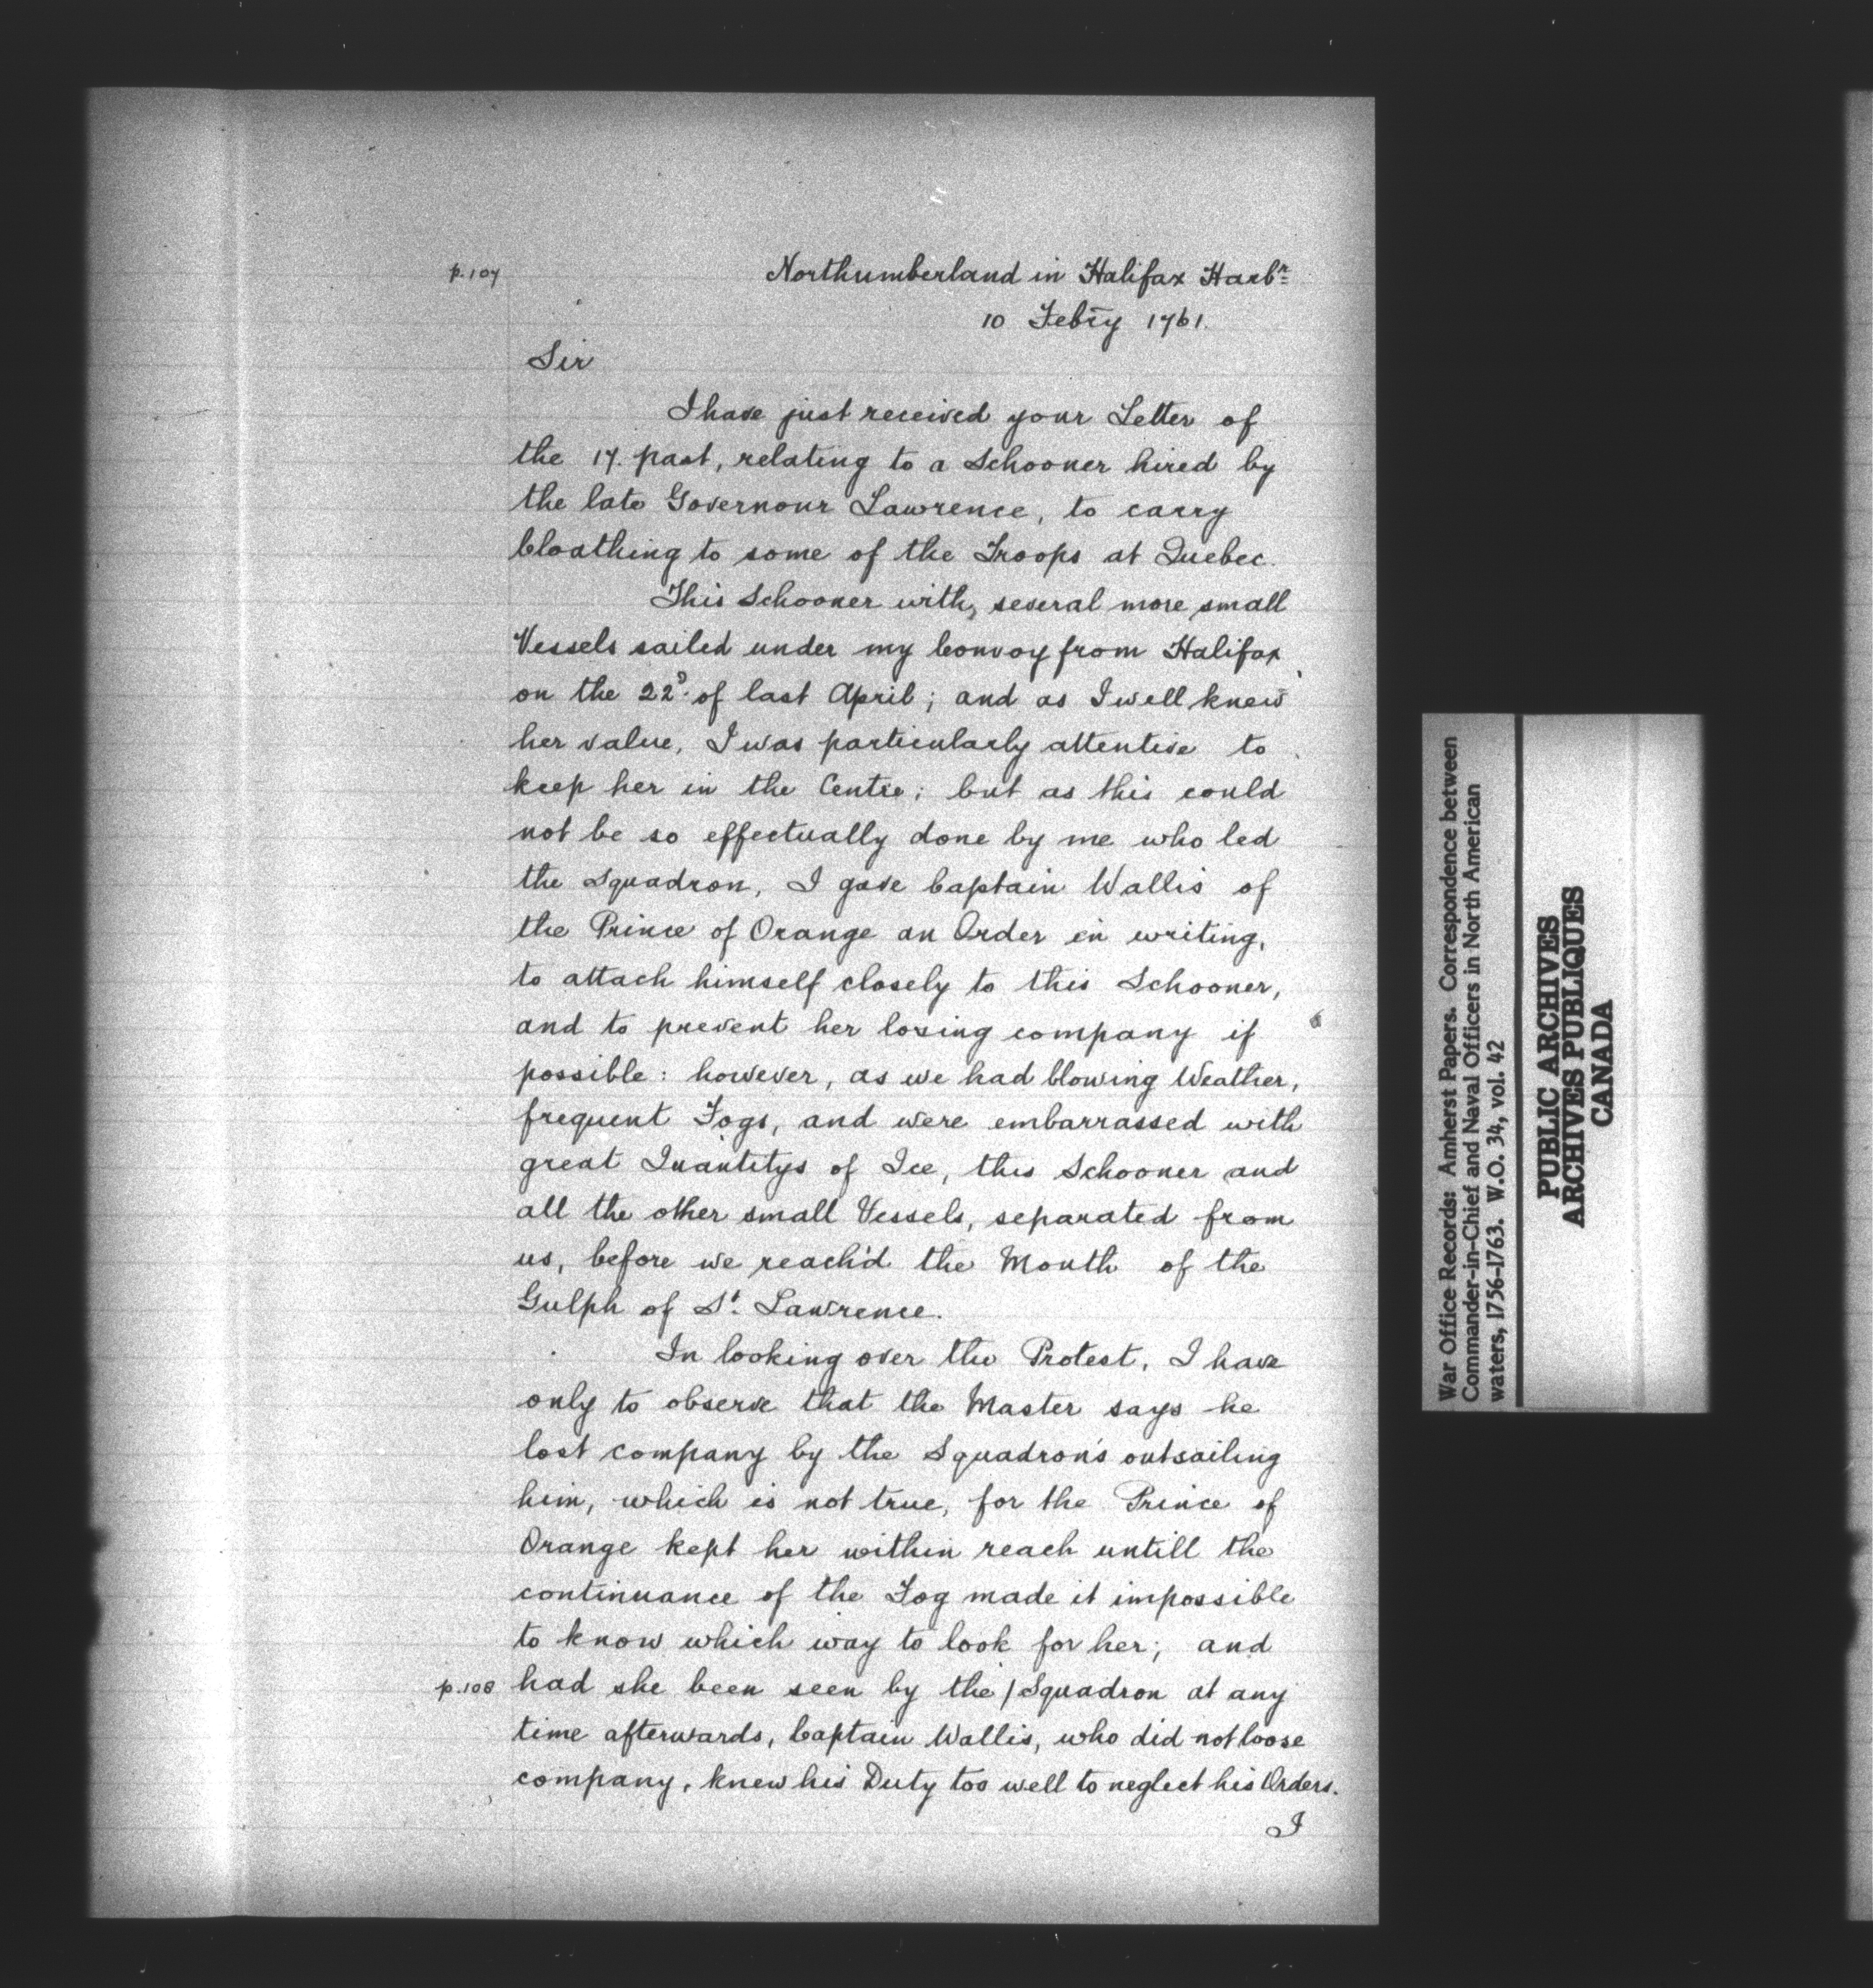 p. 107
Northumberland in Halifax Harbr.
10 Febry 1761.
Sir
I have just received your Letter of
the 17. past, relating to a Schooner hired by
the late Governour Lawrence, to carry
Cloathing to some of the Troops at Quebec.
This Schooner with, several more small
Vessels sailed under my Convoy from Halifax
on the 22d. of last April; and as I well knew
her value, I was particularly attentive to
keep her in the Centre; but as this could
not be so effectually done by me who led
the Squadron, I gave Captain Wallis of
the Prince of Orange an Order in writing,
to attach himself closely to this Schooner,
and to prevent her losing company if
possible: however, as we had blowing Weather,
frequent Fogs, and were embarrassed with
great Quantitys of Ice, this Schooner and
all the other small Vessels, separated from
us, before we reach'd the Mouth of the
Gulph of St. Lawrence.
In looking over the Protest, I have
only to observe that the Master says he
lost company by the Squadron's outsailing
him, which is not true, for the Prince of
Orange kept her within reach untill the
continuance of the Fog made it impossible
to know which way to look for her; and
p. 108 had she been seen by the / Squadron at any
time afterwards, Captain Wallis, who did not loose
company, knew his Duty too well to neglect his Orders.
I
War Office Records: Amherst Papers. Correspondence between
Commander-in-Chief and Naval Officers in North American
waters, 1756-1763. W.O. 34, vol. 42
PUBLIC ARCHIVES
ARCHIVES PUBLIQUES
CANADA